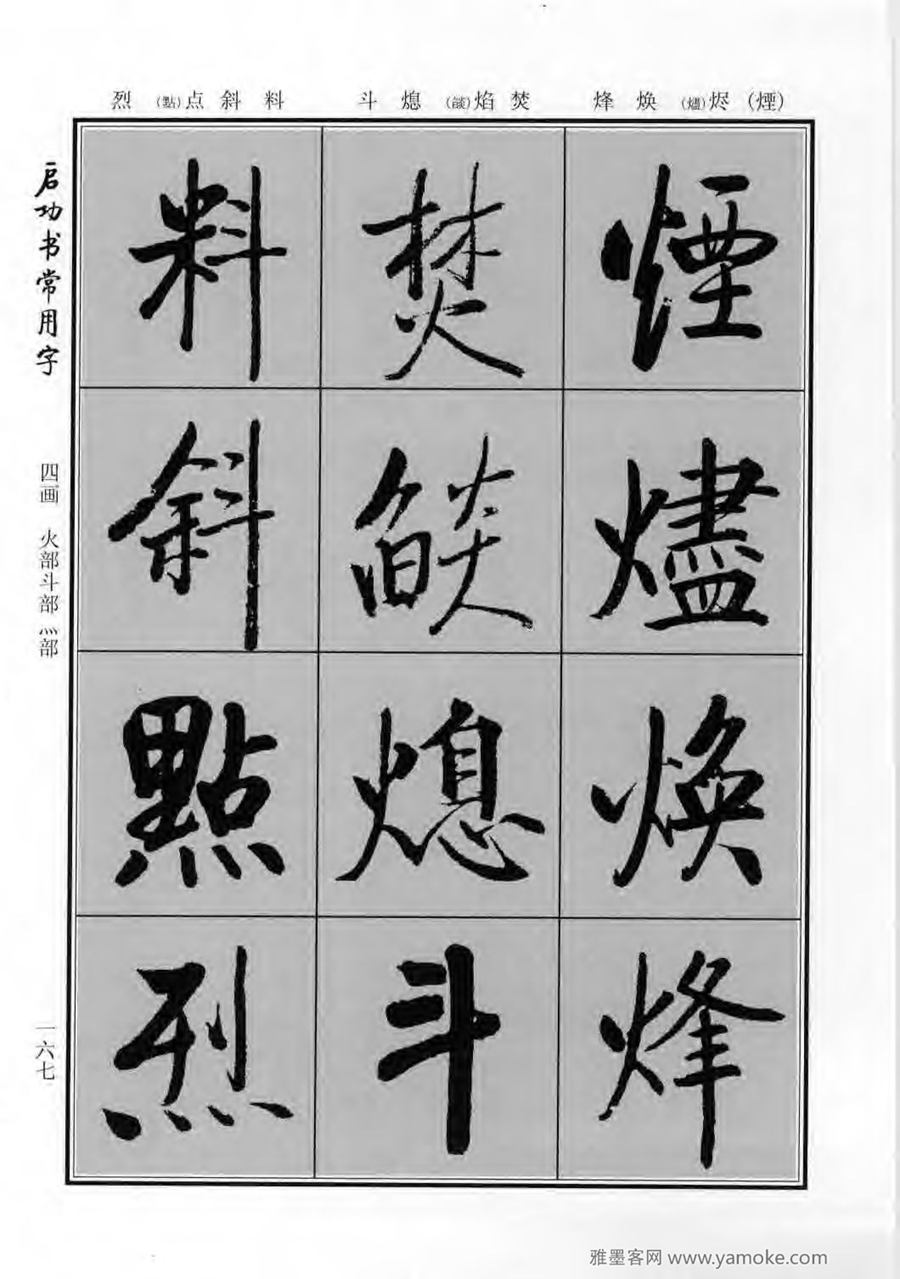 (煙)烬(燼)焕烽
焚焰(燄)熄斗
料斜点(點)烈
煙燼焕烽
焚燄熄斗
料斜點烈
启功书常用字
四画 火部斗部灬部
一六七
雅墨客网 www.yamoke.com